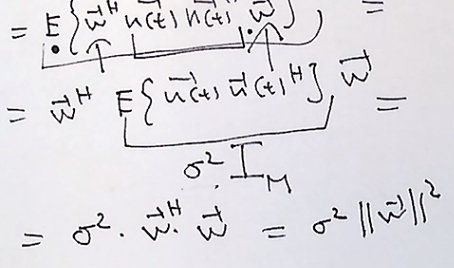 = E{w⃗ᴴ n⃗(t) n⃗(t)ᴴ w⃗} =
= w⃗ᴴ E{n⃗(t) n⃗(t)ᴴ} w⃗ =
σ² I_M
= σ² · w⃗ᴴ · w⃗ = σ² ||w⃗||²